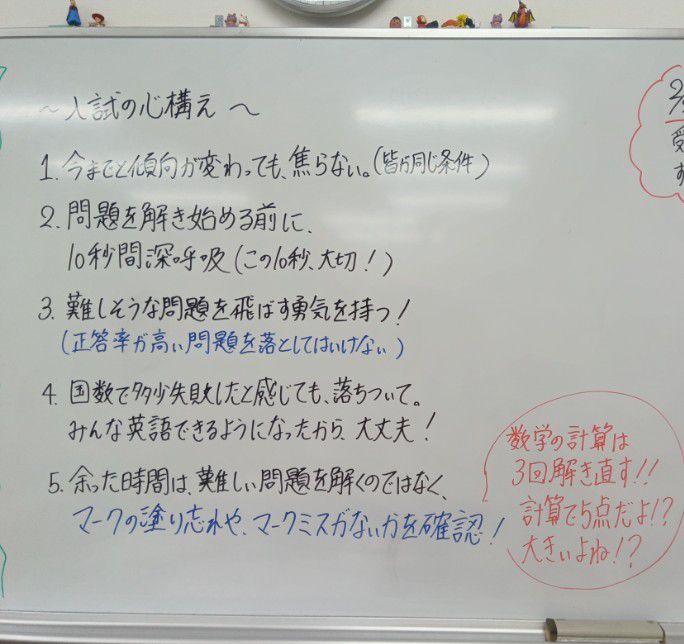 ~入試の心構え~
1. 今までと傾向が変わっても、焦らない。(皆が同じ条件)
2. 問題を解き始める前に、
10秒間深呼吸(この10秒、大切!)
3. 難しそうな問題を飛ばす勇気を持つ!
(正答率が高い問題を落としてはいけない)
4. 国数で多少失敗したと感じても、落ちついて。
みんな英語できるようになったから、大丈夫!
5. 余った時間は、難しい問題を解くのではなく、
マークの塗り忘れや、マークミスがないかを確認!
数学の計算は
3回解き直す!!
計算で5点だよ!?
大きいよね!?
受
す